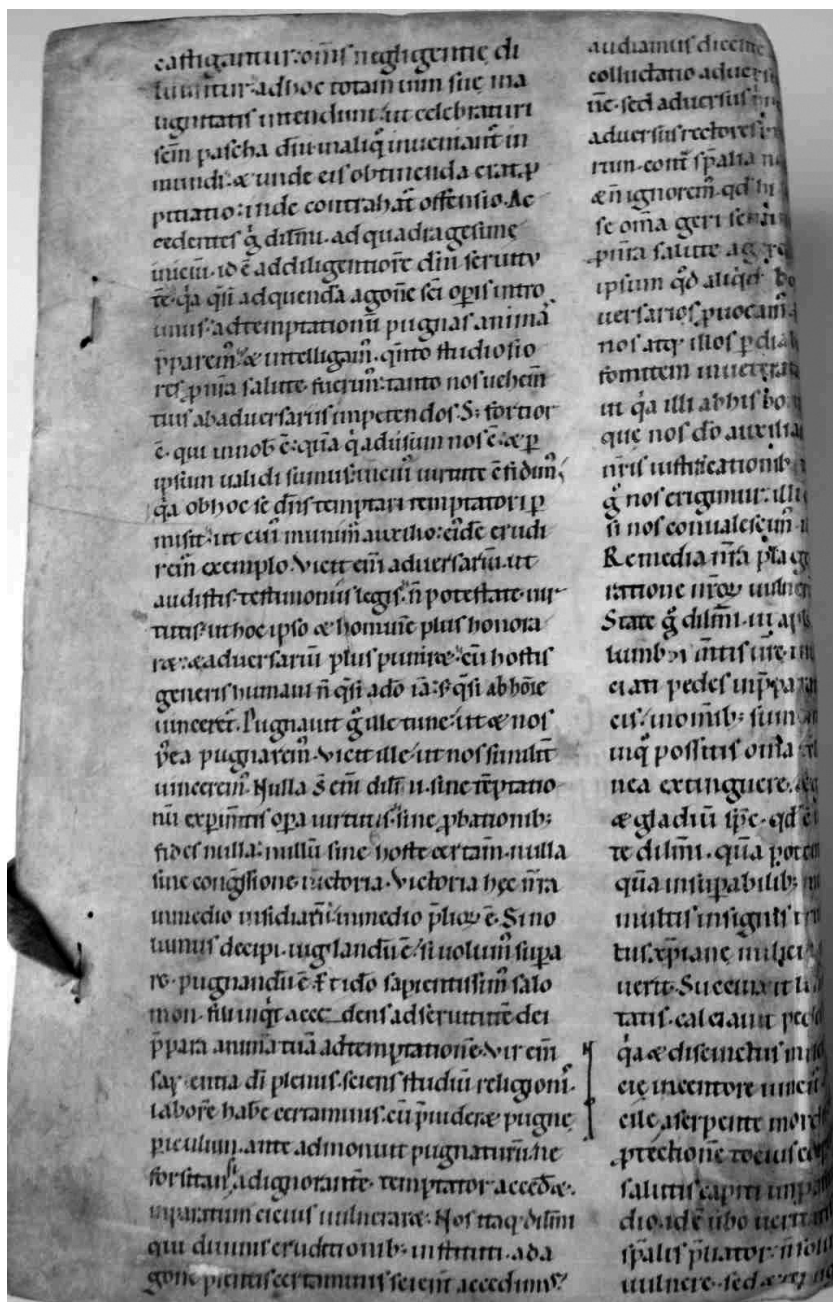 castigantur: om̅s negligentię di
luuntur: ad hoc totam uim suę ma
lignitatis intendunt: ut celebraturi
sc̅m pascha dn̅i in aliq̊ inueniant̅ in
mundi: & unde eis obtinenda erat p̱
pitiatio: inde contrahat̅ offensio. Ac
cedentes g̊ dilm̅i. ad quadragesimę
iniciu̅. id ē ad diligentiore̅ dn̅i seruitu
te̅. q̇a q̅si ad quenda̅ agone̅ sc̅i op̱is intro
imus: ad temptationu̅ pugnas anima̅
p̱parem᾽. & intelligam᾽. q̅nto studiosio
res p̱ nr̅a salute fuerim᾽: tanto nos uehem̅
tius ab aduersariis impetendos. S; fortior
ē. qui in nob̅ ē: qua̅ q̇ aduisum nos ē. & p̱
ipsum ualidi sumus: in cui᾽ uirtute c̅fidim᾽.
q̇a ob hoc se dn̅s temptari a temptatori p̱
misit: ut cui᾽ munim᾽ auxilio: ei᾽de̅ erudi
rem᾽ exemplo. Vicit eni̅ aduersariu̅. ut
audistis. testimoniis legis. n̅ potestate uir
tutis: ut hoc ipso & homine̅ plus honora
r&: & aduersariu̅ plus punir&: cu̅ hostis
generis humani n̅ q̅si a d̅o ia̅: s; q̅si ab ho̅ie
uinceret᾽. Pugnauit g̊ ille tunc: ut & nos
p̱ea pugnarem᾽. Vicit ille: ut nos similit̅
uincerem᾽. Nulla s̅ eni̅ dilm̅i. sine te̅ptatio
nu̅ experim̅tis op̱a uirtutis. sine p̱bationib;
fides nulla: nullu̅ sine hoste certam̅. nulla
sine congressione uictoria. Victoria hęc nr̅a
in medio insidiaru̅: in medio p̅lioꝝ ē. Si no
lumus decipi. uigilandu̅ ē: si uolum᾽ sup̱a
re. pugnandu̅ ē. Et ido̅ sapientissim᾽ salo
mon. fili inq̇t accedens ad seruitute̅ dei
p̱para anima̅ tua̅ ad temptatione̅. Vir eni̅
sapientia di̅ plenus. sciens studiu̅ religionis.
labore̅ habe̅ certaminis. cu̅ p̱uider& pugnę
p̱iculum. ante admonuit pugnaturu̅: ne
forsitan si ad ignorante̅. temptator acced&.
inparatum cicius uulnerar&. Nos itaq; dilm̅i
qui diuinis eruditionib; instituti. ad a
gone̅ p̱sentis certaminis scient̅ accedimus.
audiamus dicente̅
colluctatio aduersus
ne̅. sed aduersus
aduersus rectores
rum. cont̅ sp̅alia n
& n̅ ignorem᾽. qd̅ hi
se om̅a geri
p̱ nr̅a salute ag
ipsum q̅d aliq̇d bo
uersarios p̱uocam᾽
nos atq; illos p̱ diab
fomitem inueterat
ut q̇a illi ab his bo
que nos d̅o auxilia
nr̅is iustificationib;
g̊ nos erigimur: illi
si nos conualescim᾽
Remedia nr̅a plag
ratione nr̅oꝝ uulne
State g̊ dilm̅i. ut ap
lumbi m̅tis ur̅e in
ciati pedes in p̱para
cis: in omib; sum
in q̊ possitis om̅a
nea extinguere. &
& gladiu̅ sp̅c. qd̅ ē
te dilm̅i. qua̅ poten
qua̅ insup̱abilib;
multis insignis tri
tus. xp̅iane̅ milici
uerit. Succinxit lu
tatis. calciauit ped
q̇a & discinctus mil
cię incentore uincit
cile a serpente mord
p̱tectione̅ tocius co
salutis capiti imp
dio. id ē ubo̅ uerita
sp̅alis p̱liator. in so
uulnere. sed &